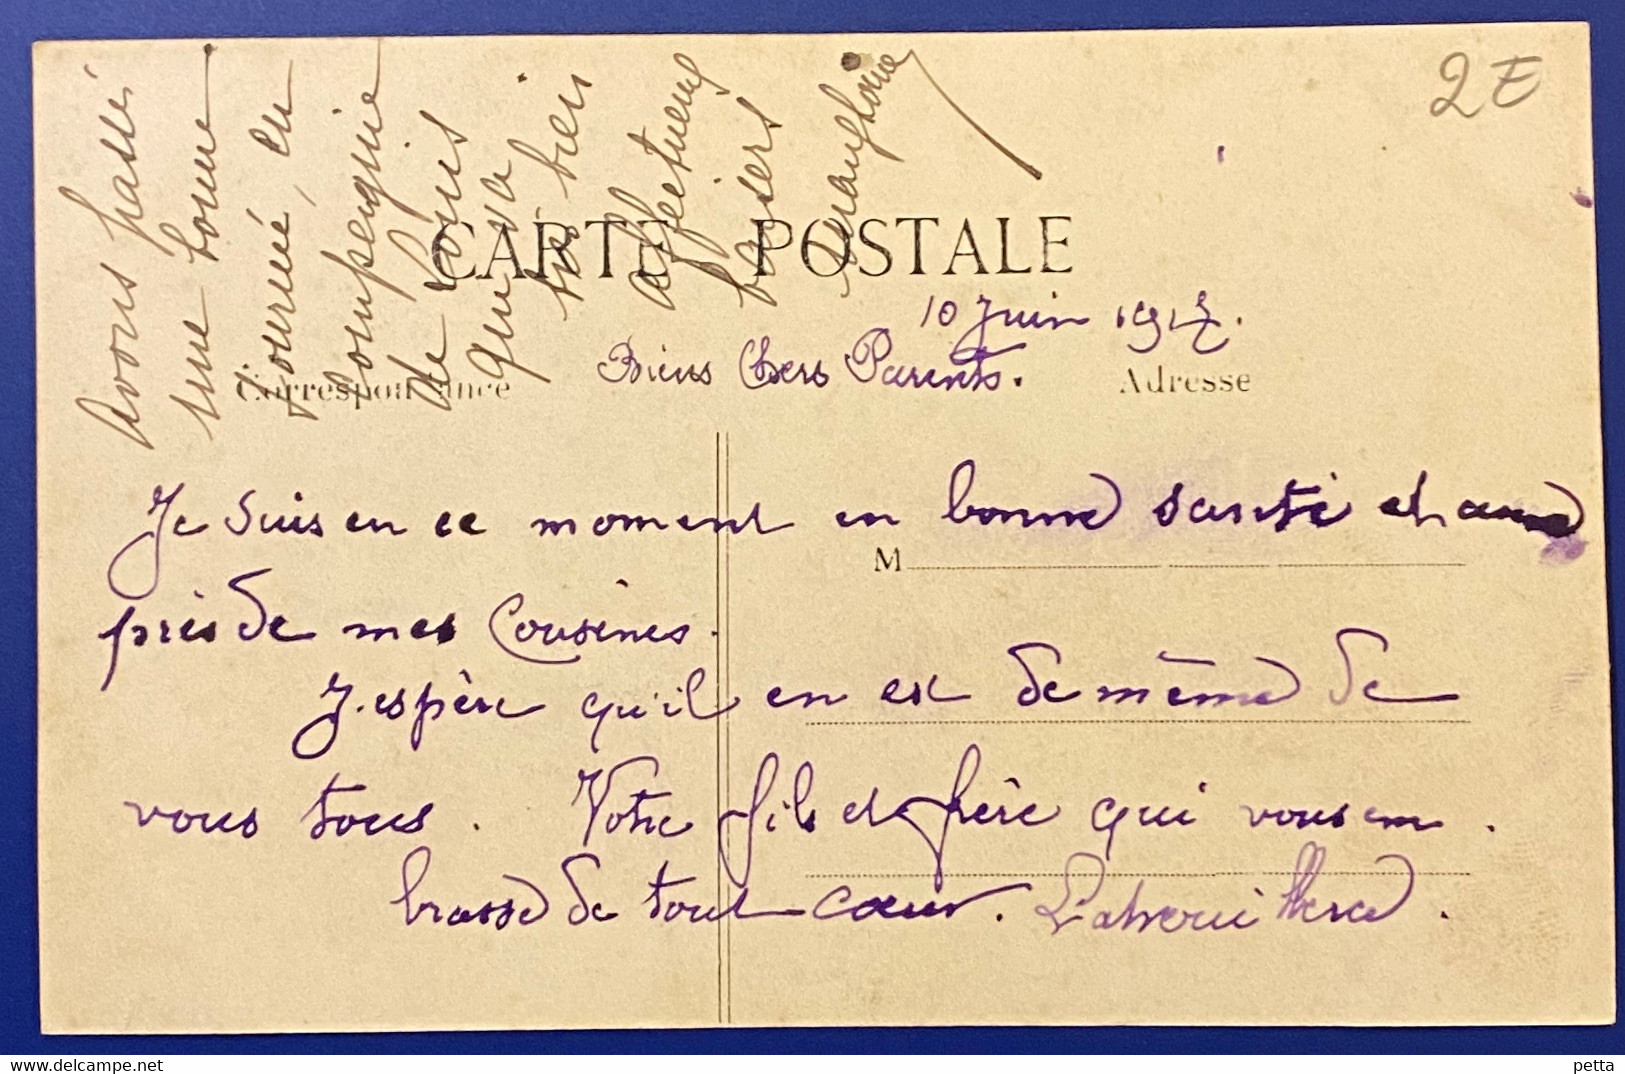 2 E
Avons passé
une bonne
journée, en
compengnie
de Louis
qui va
très bien
affectueux
baisers
CARTE POSTALE
10 Juin 1917.
Biens Chers Parents.
Correspondance
Adresse
Je suis en ce moment en bonne santé et
M
près de mes Cousines.
J'espère qu'il en est de même de
vous tous. Votre fils et frère qui vous em
brasse de tout cœur.
petta